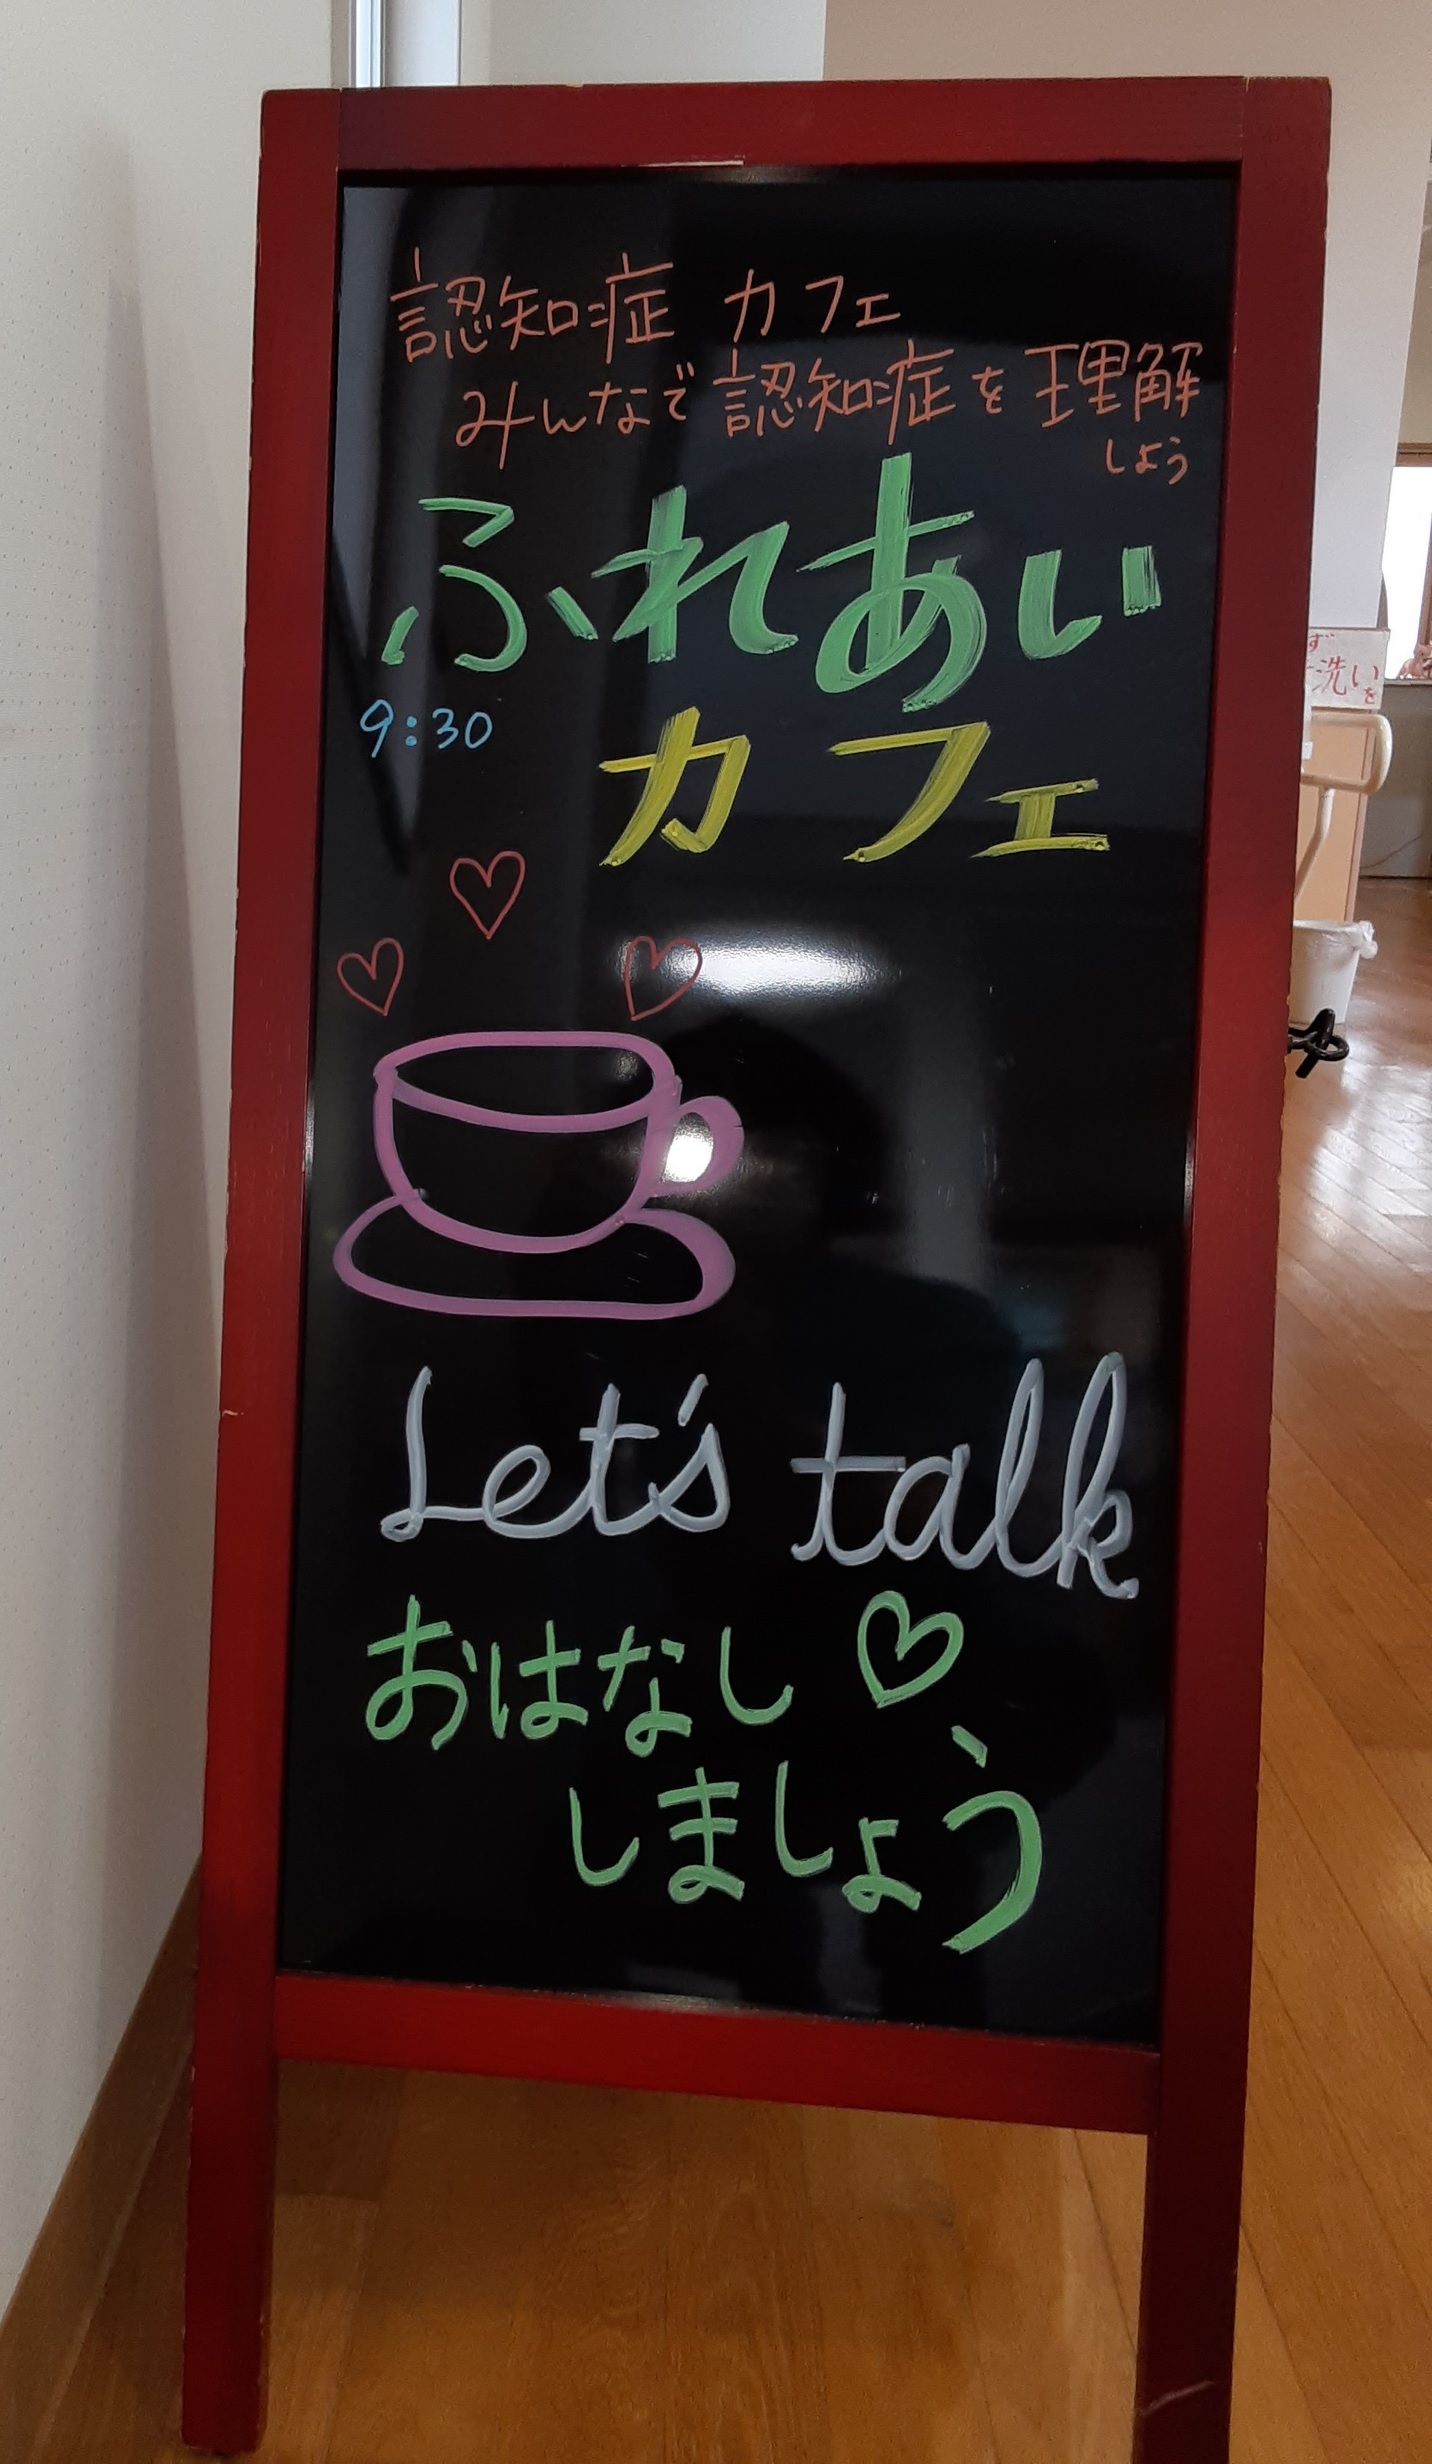 認知症 カフェ
みんなで認知症を理解
しよう
ふれあい
9:30
カフェ
Let's talk
おはなし♡
しましょう
ず
洗いを